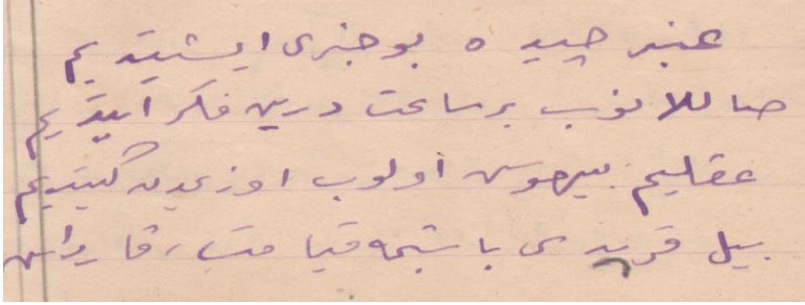 عنبر چیده بو خبری ایشیتدیم
صاللانوب بر ساعت درین فکر ایتدیم
عقلیم بیهوس اولوب اوزیمدن گیتدیم
بیل باشمه قیامت قارداش